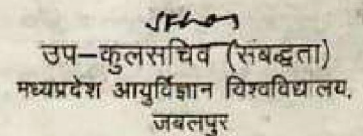 उप–कुलसचिव (संबद्धता)
मध्यप्रदेश आयुर्विज्ञान विश्वविद्यालय,
जबलपुर